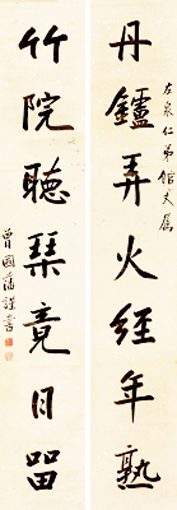 左泉仁弟館丈屬
丹鑪弄火經年熟
竹院聽琴竟日留
曾國藩謹書